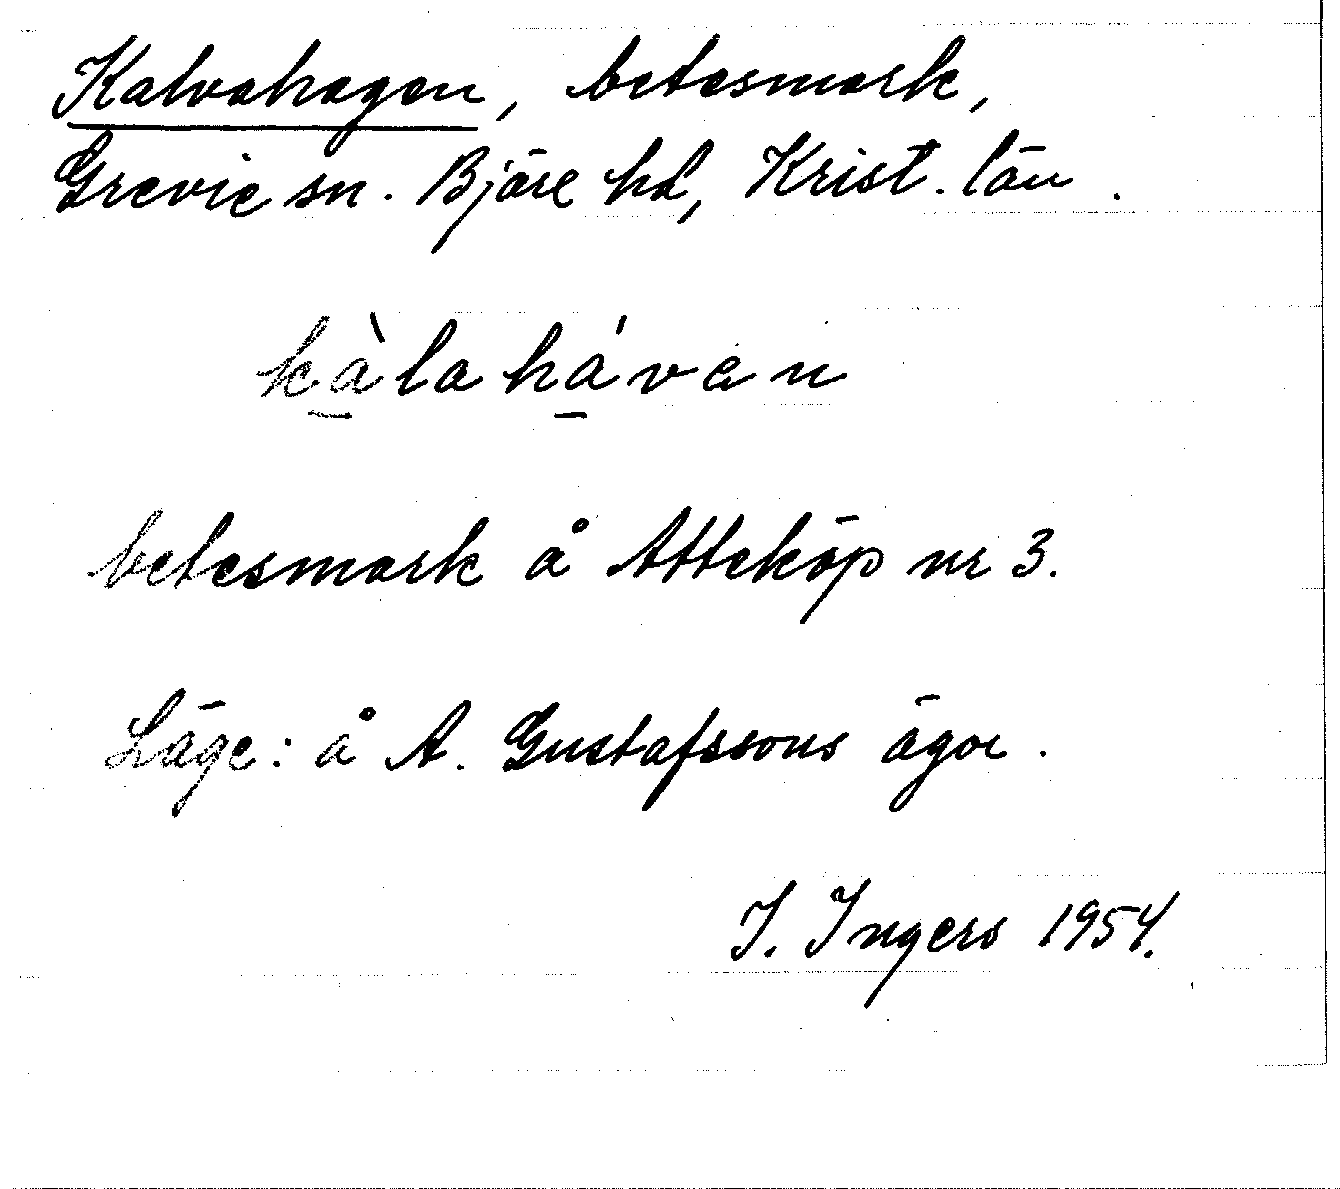 Kalvahagen, betesmark,
Grevie sn. Bjäre hd, Krist. län.
kàlahávən
betesmark å Atteköp nr 3.
Läge: å A. Gustafssons ägor.
I. Ingers 1954.